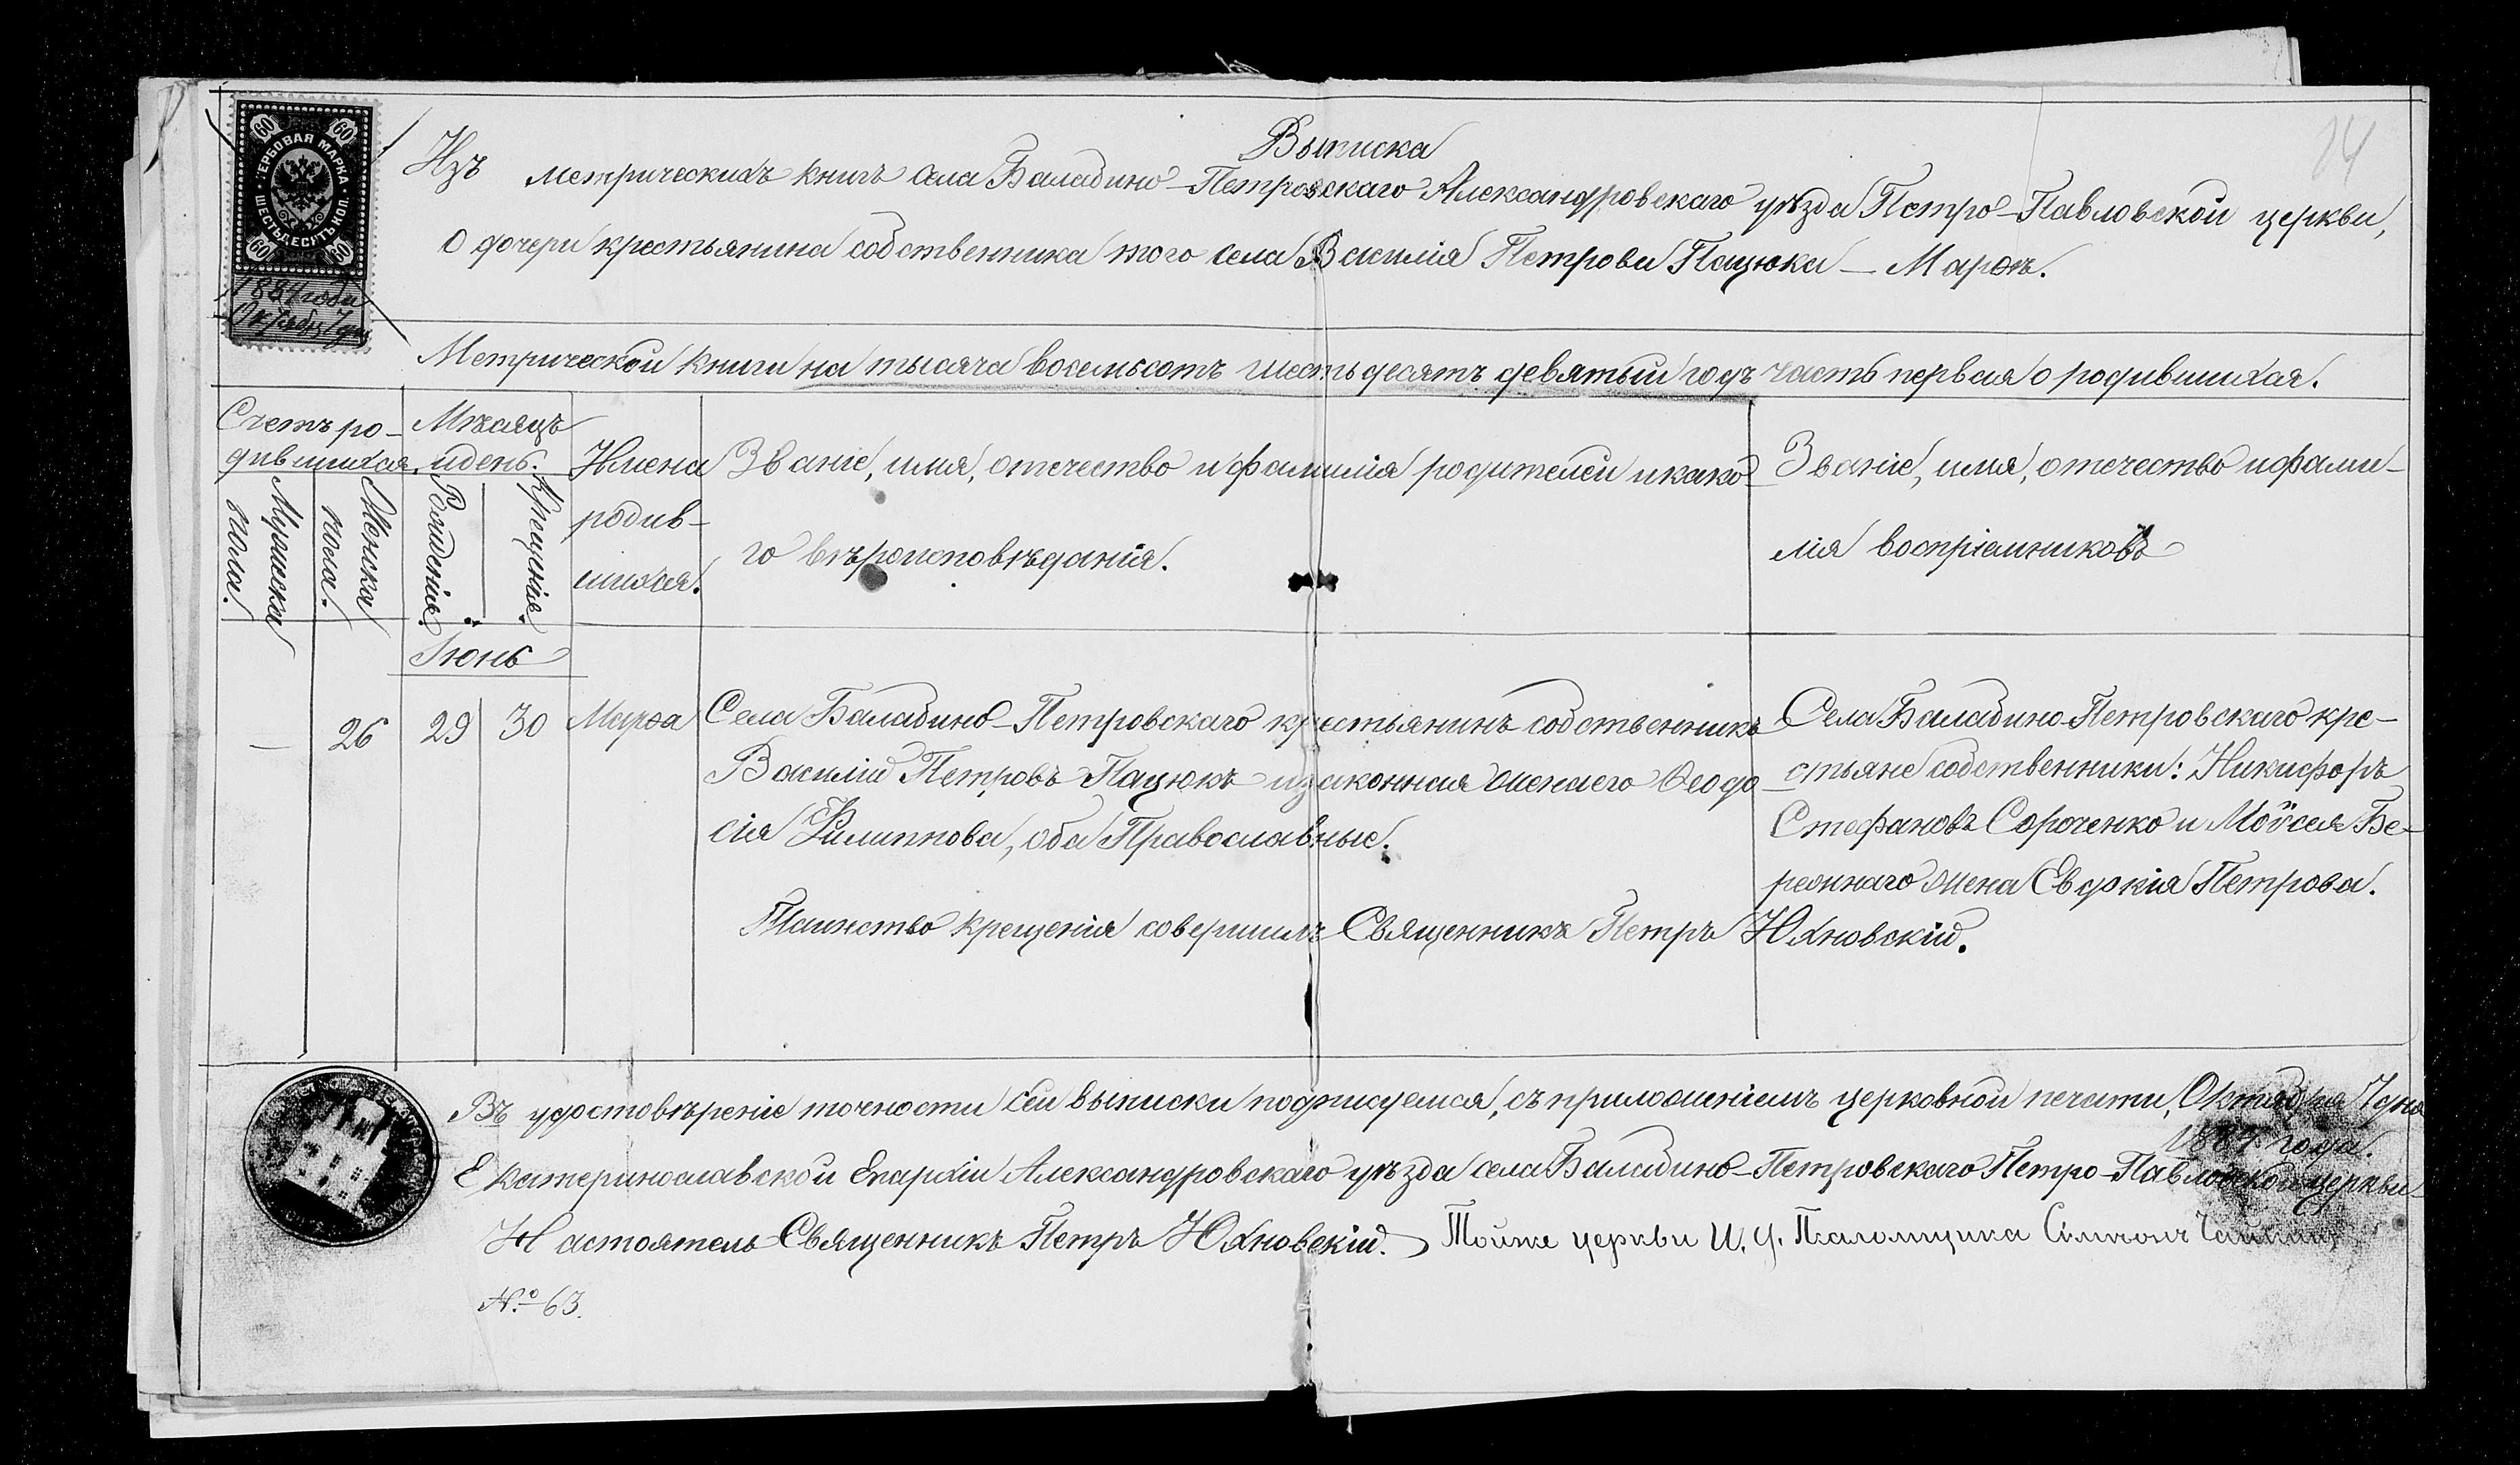 14
60 60
ГЕРБОВАЯ МАРКА
ШЕСТЬДЕСЯТЪ КОП.
60
1887 года
Октября 7 дня
Выписка
Изъ метрическихъ книгъ села Балабино-Петровскаго Александровскаго уѣзда Петро-Павловской церкви,
о дочери крестьянина собственника того села Василія Петрова Пацюка — Марѳѣ.
Метрической книги на тысяча восемьсотъ шестьдесятъ девятый годъ часть первая о родившихся.
Счетъ ро-
дившихся.
Мужеска
пола.
Женска
пола.
Мѣсяцъ
и день.
Рожденія.
Крещенія.
Имена
родив-
шихся.
Званіе, имя, отечество и фамилія родителей и како-
го вѣроисповѣданія.
Званіе, имя, отечество и фами-
лія воспріемниковъ
Іюнь
— 26 29 30 Марѳа
Села Балабино-Петровскаго крестьянинъ собственникъ
Василій Петровъ Пацюкъ и законная жена его Ѳеодо-
сія Филиппова, оба Православные.
Села Балабино-Петровскаго кре-
стьяне собственники: Никифоръ
Стефановъ Сороченко и Мойсея Бе-
режнаго жена Евдокія Петрова.
Таинство крещенія совершилъ Священникъ Петръ Юхновскій.
Въ удостовѣреніе точности сей выписки подписуемся, съ приложеніемъ церковной печати, Октября 7 дня
1887 года.
Екатеринославской Епархіи Александровскаго уѣзда села Балабино-Петровскаго Петро-Павловской церкви
Настоятель Священникъ Петръ Юхновскій. Тойже церкви И. д. Псаломщика Симеонъ
№ 63.